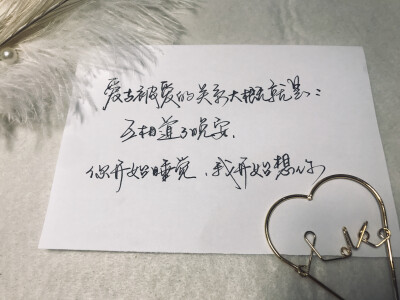 爱与被爱的关系大概就是：
互相道了晚安，
你开始睡觉，我开始想你